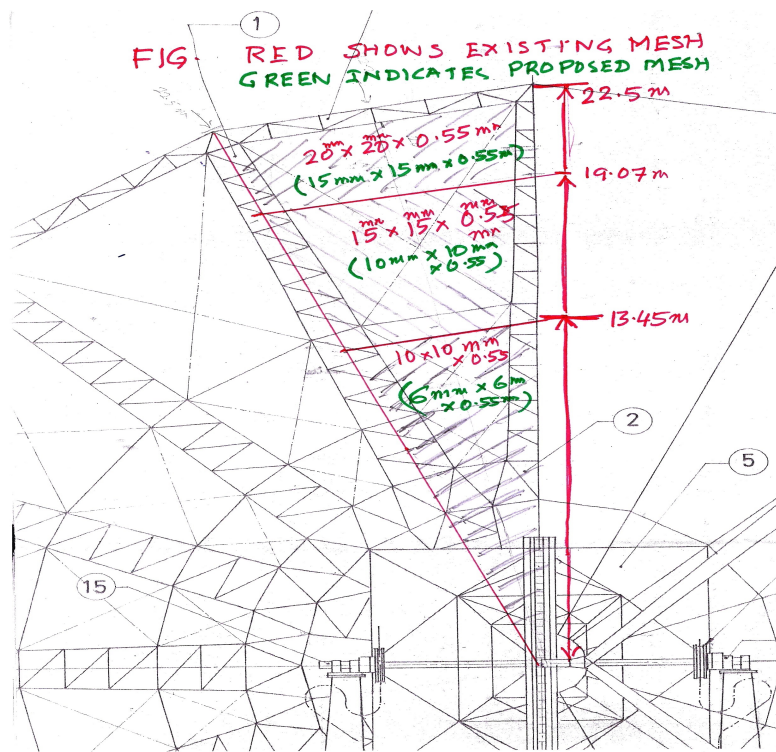 1
FIG. RED SHOWS EXISTING MESH
GREEN INDICATES PROPOSED MESH
22.5 m
20 mm x 20 mm x 0.55 mm
(15 mm x 15 m x 0.55 m)
19.07 m
15 mm x 15 mm x 0.55 mm
mm
(10 mm x 10 mm
x 0.55)
13.45 m
10 x 10 mm
x 0.55
(6 mm x 6 m
x 0.55 m)
2
5
15